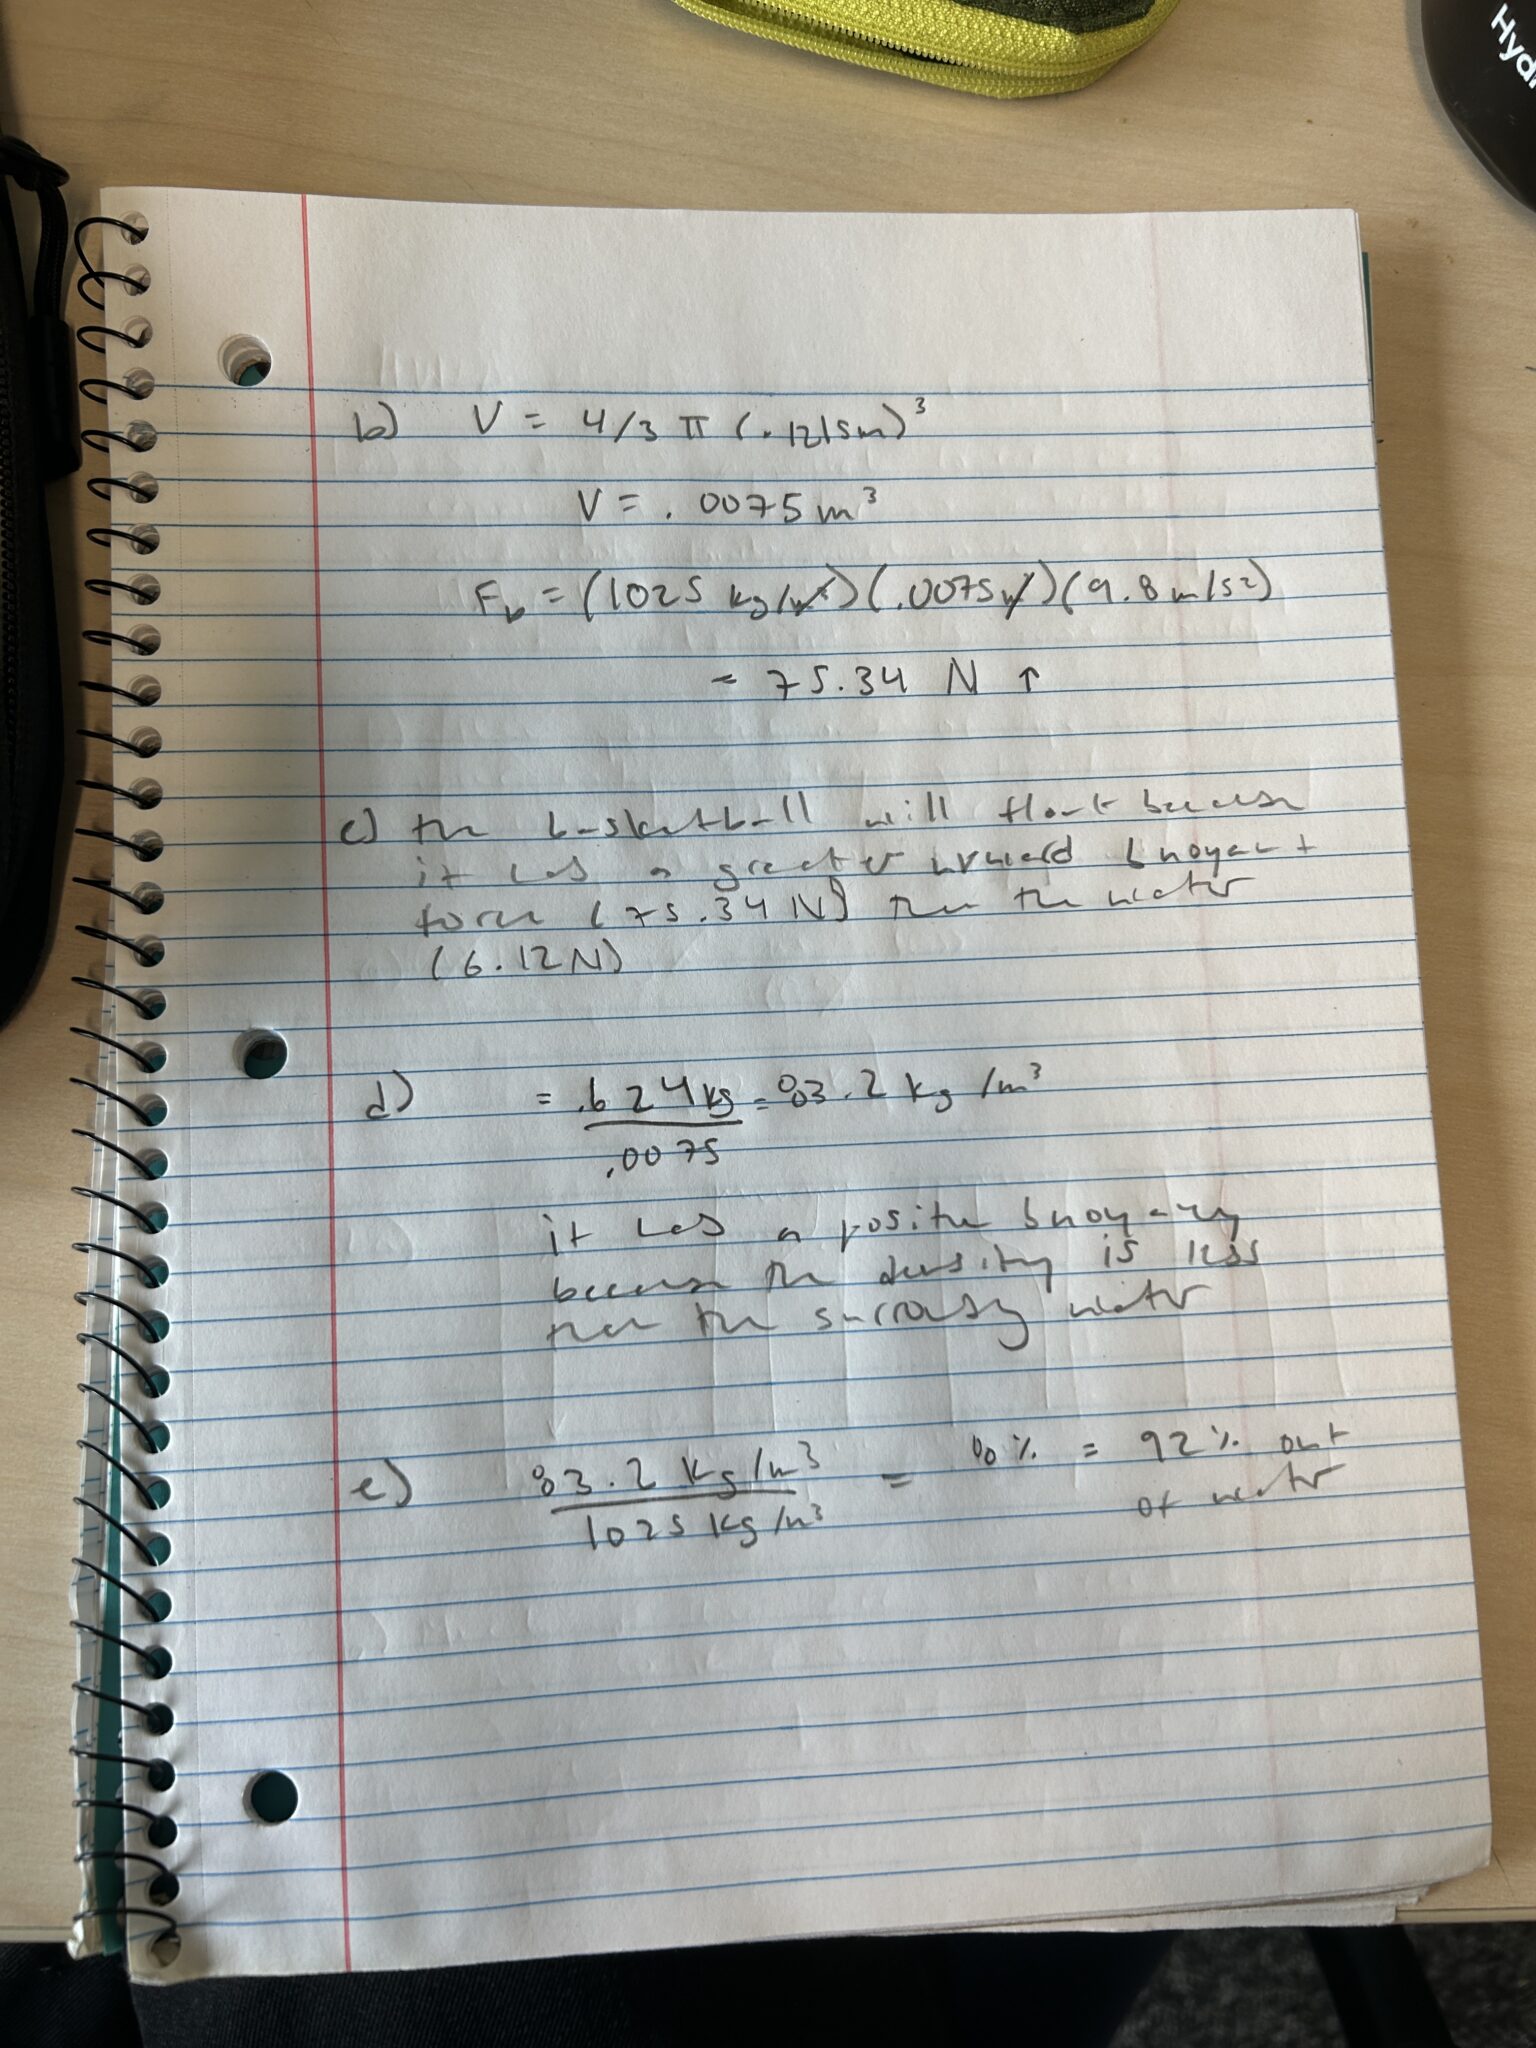 Hyd
b) V = 4/3 π (.1215m)³
V = .0075 m³
Fb = (1025 kg/m³)(.0075m³)(9.8 m/s2)
= 75.34 N ↑
c) the basketball will float because
it has a greater upward buoyant
force (75.34 N) than the water
(6.12N)
d) = .624kg/.0075 = 83.2 kg/m³
it has a positive buoyancy
because the density is less
than the surrounding water
e) 83.2 kg/m³/1025 kg/m³ = 8% = 92% out
of water